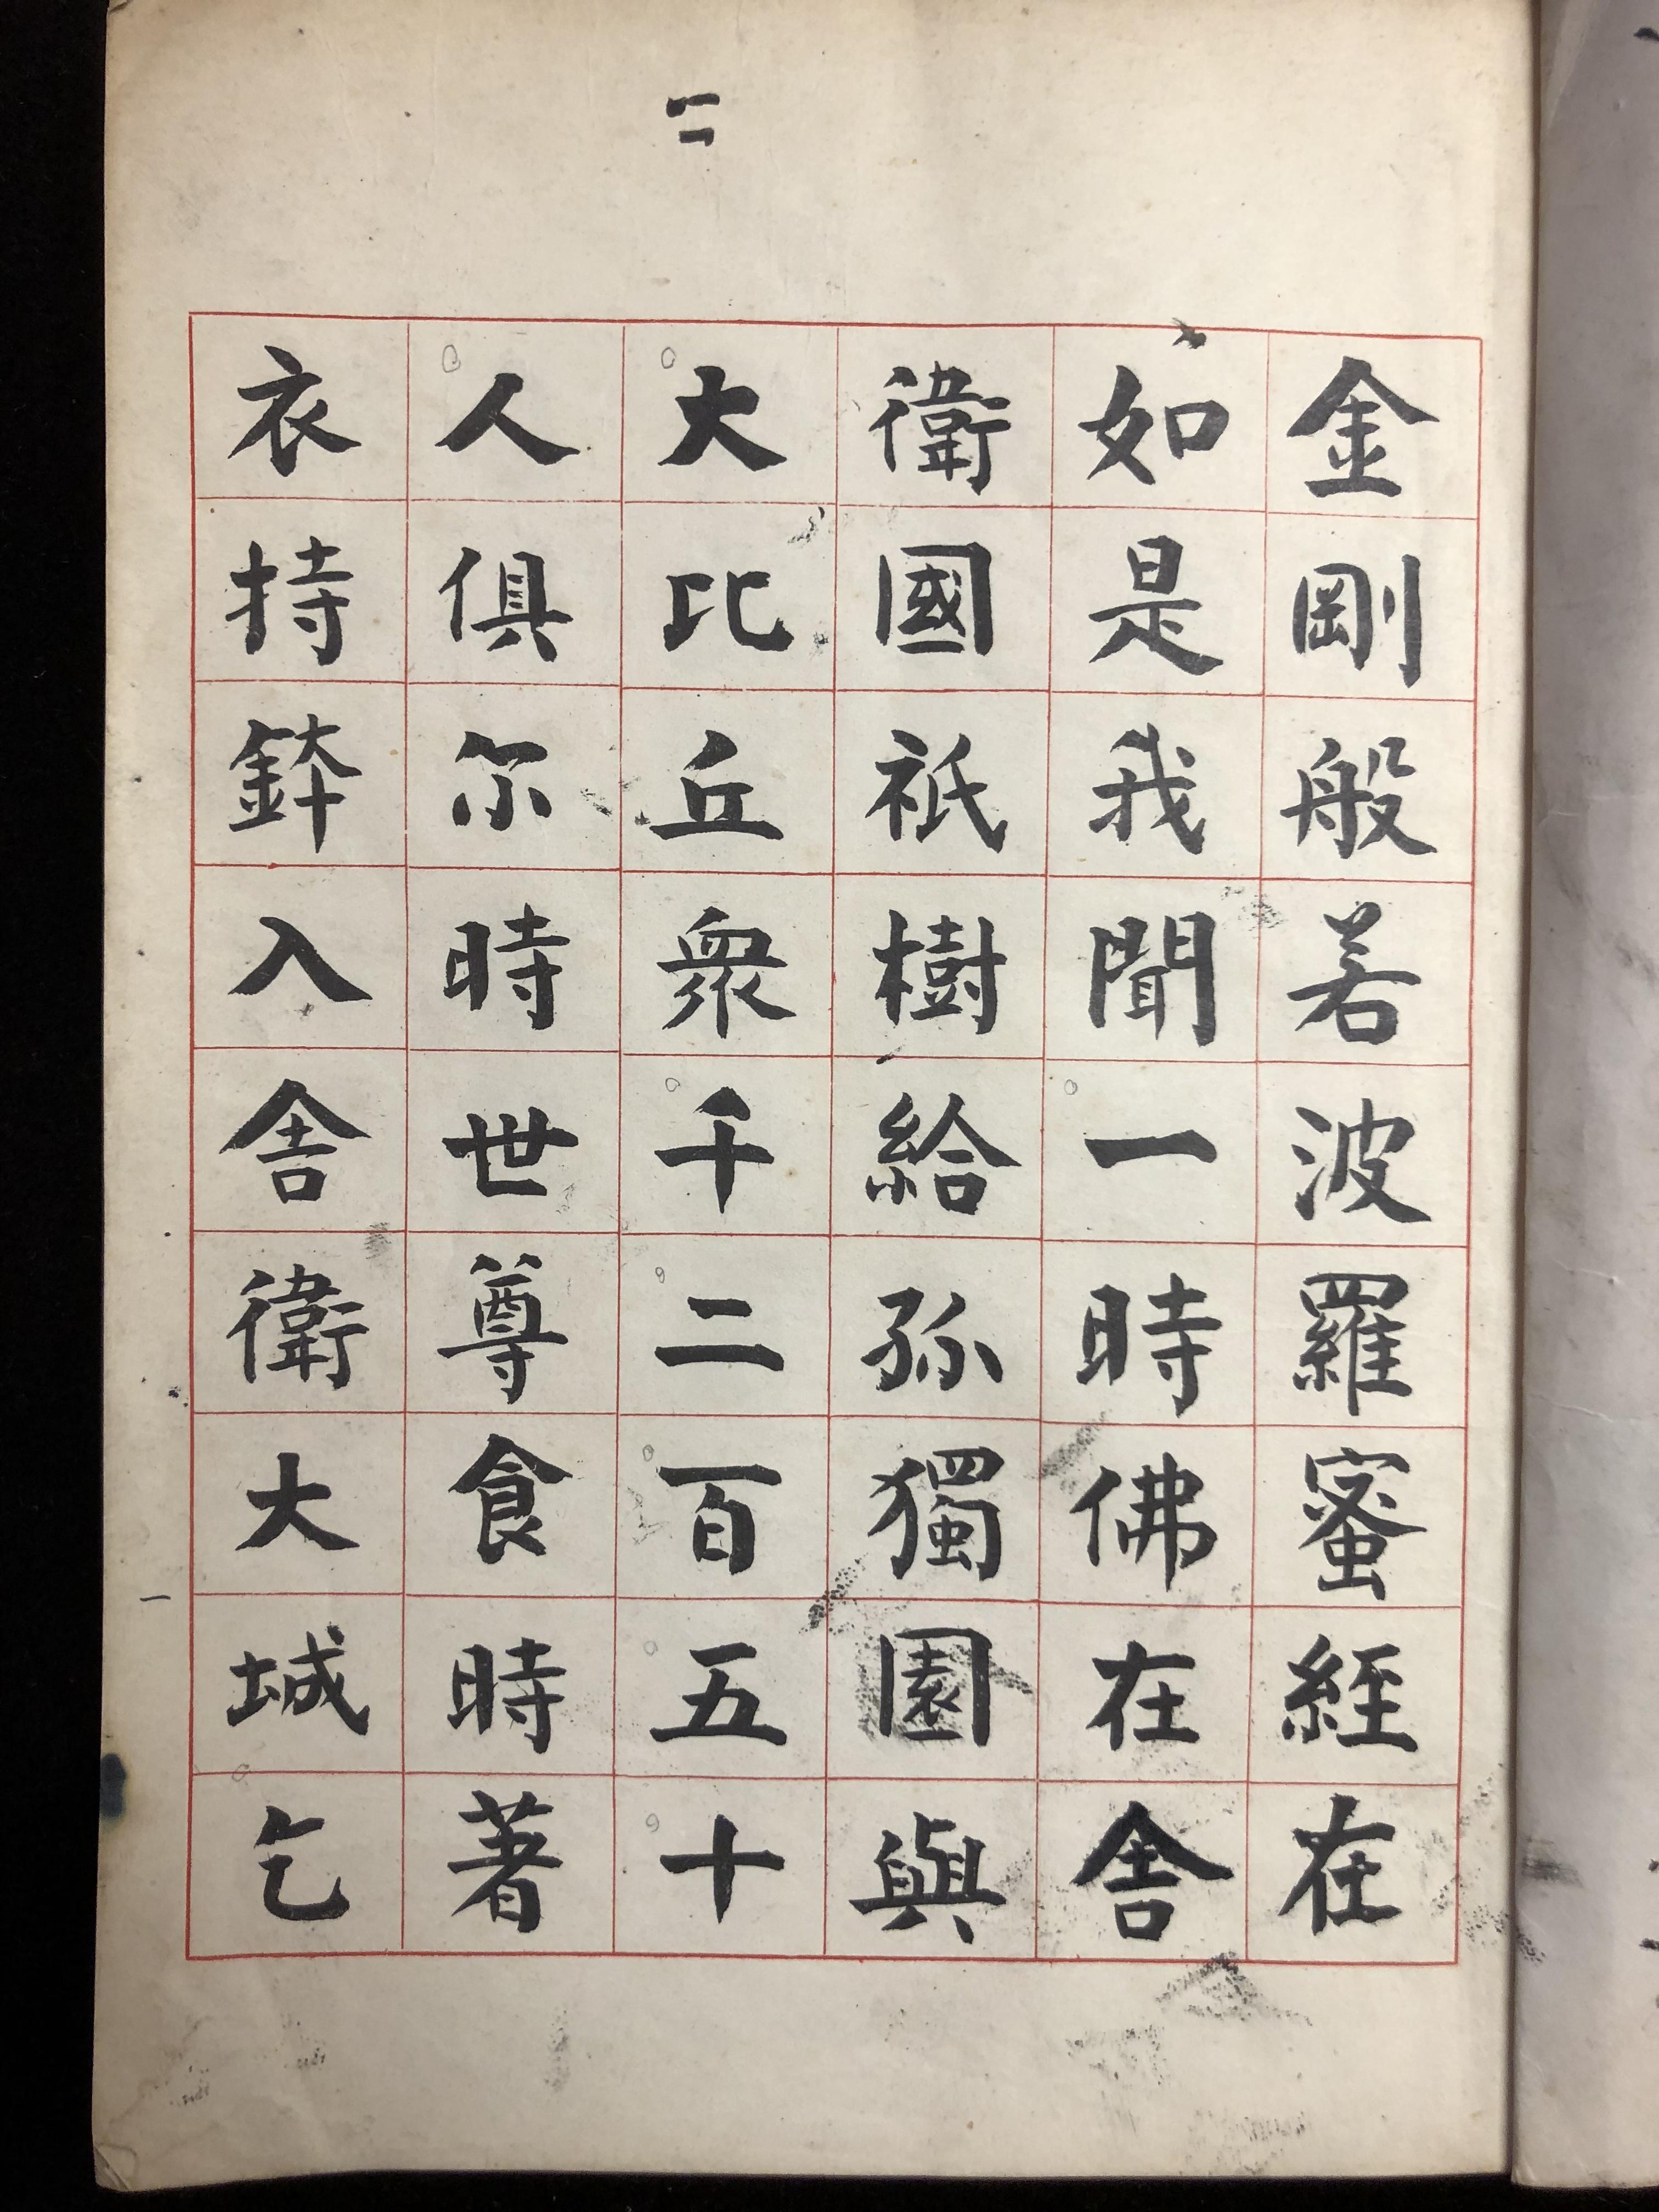 二
金剛般若波羅蜜經在
如是我聞一時佛在舍
衛國祇樹給孤獨園與
大比丘衆千二百五十
人俱尓時世尊食時著
衣持鉢入舍衛大城乞
一